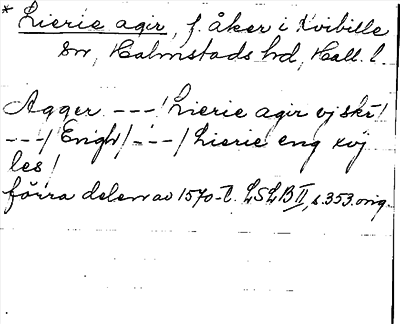 * Lierie agir, f. åker i Kvibille
sn, Halmstads hd, Hall. l.
Agger --- / Lierie agir vj skr /
--- / Engh / --- / Lierie eng xvj
les /
förra delen av 1570-t. LSLB II, s. 353. orig.